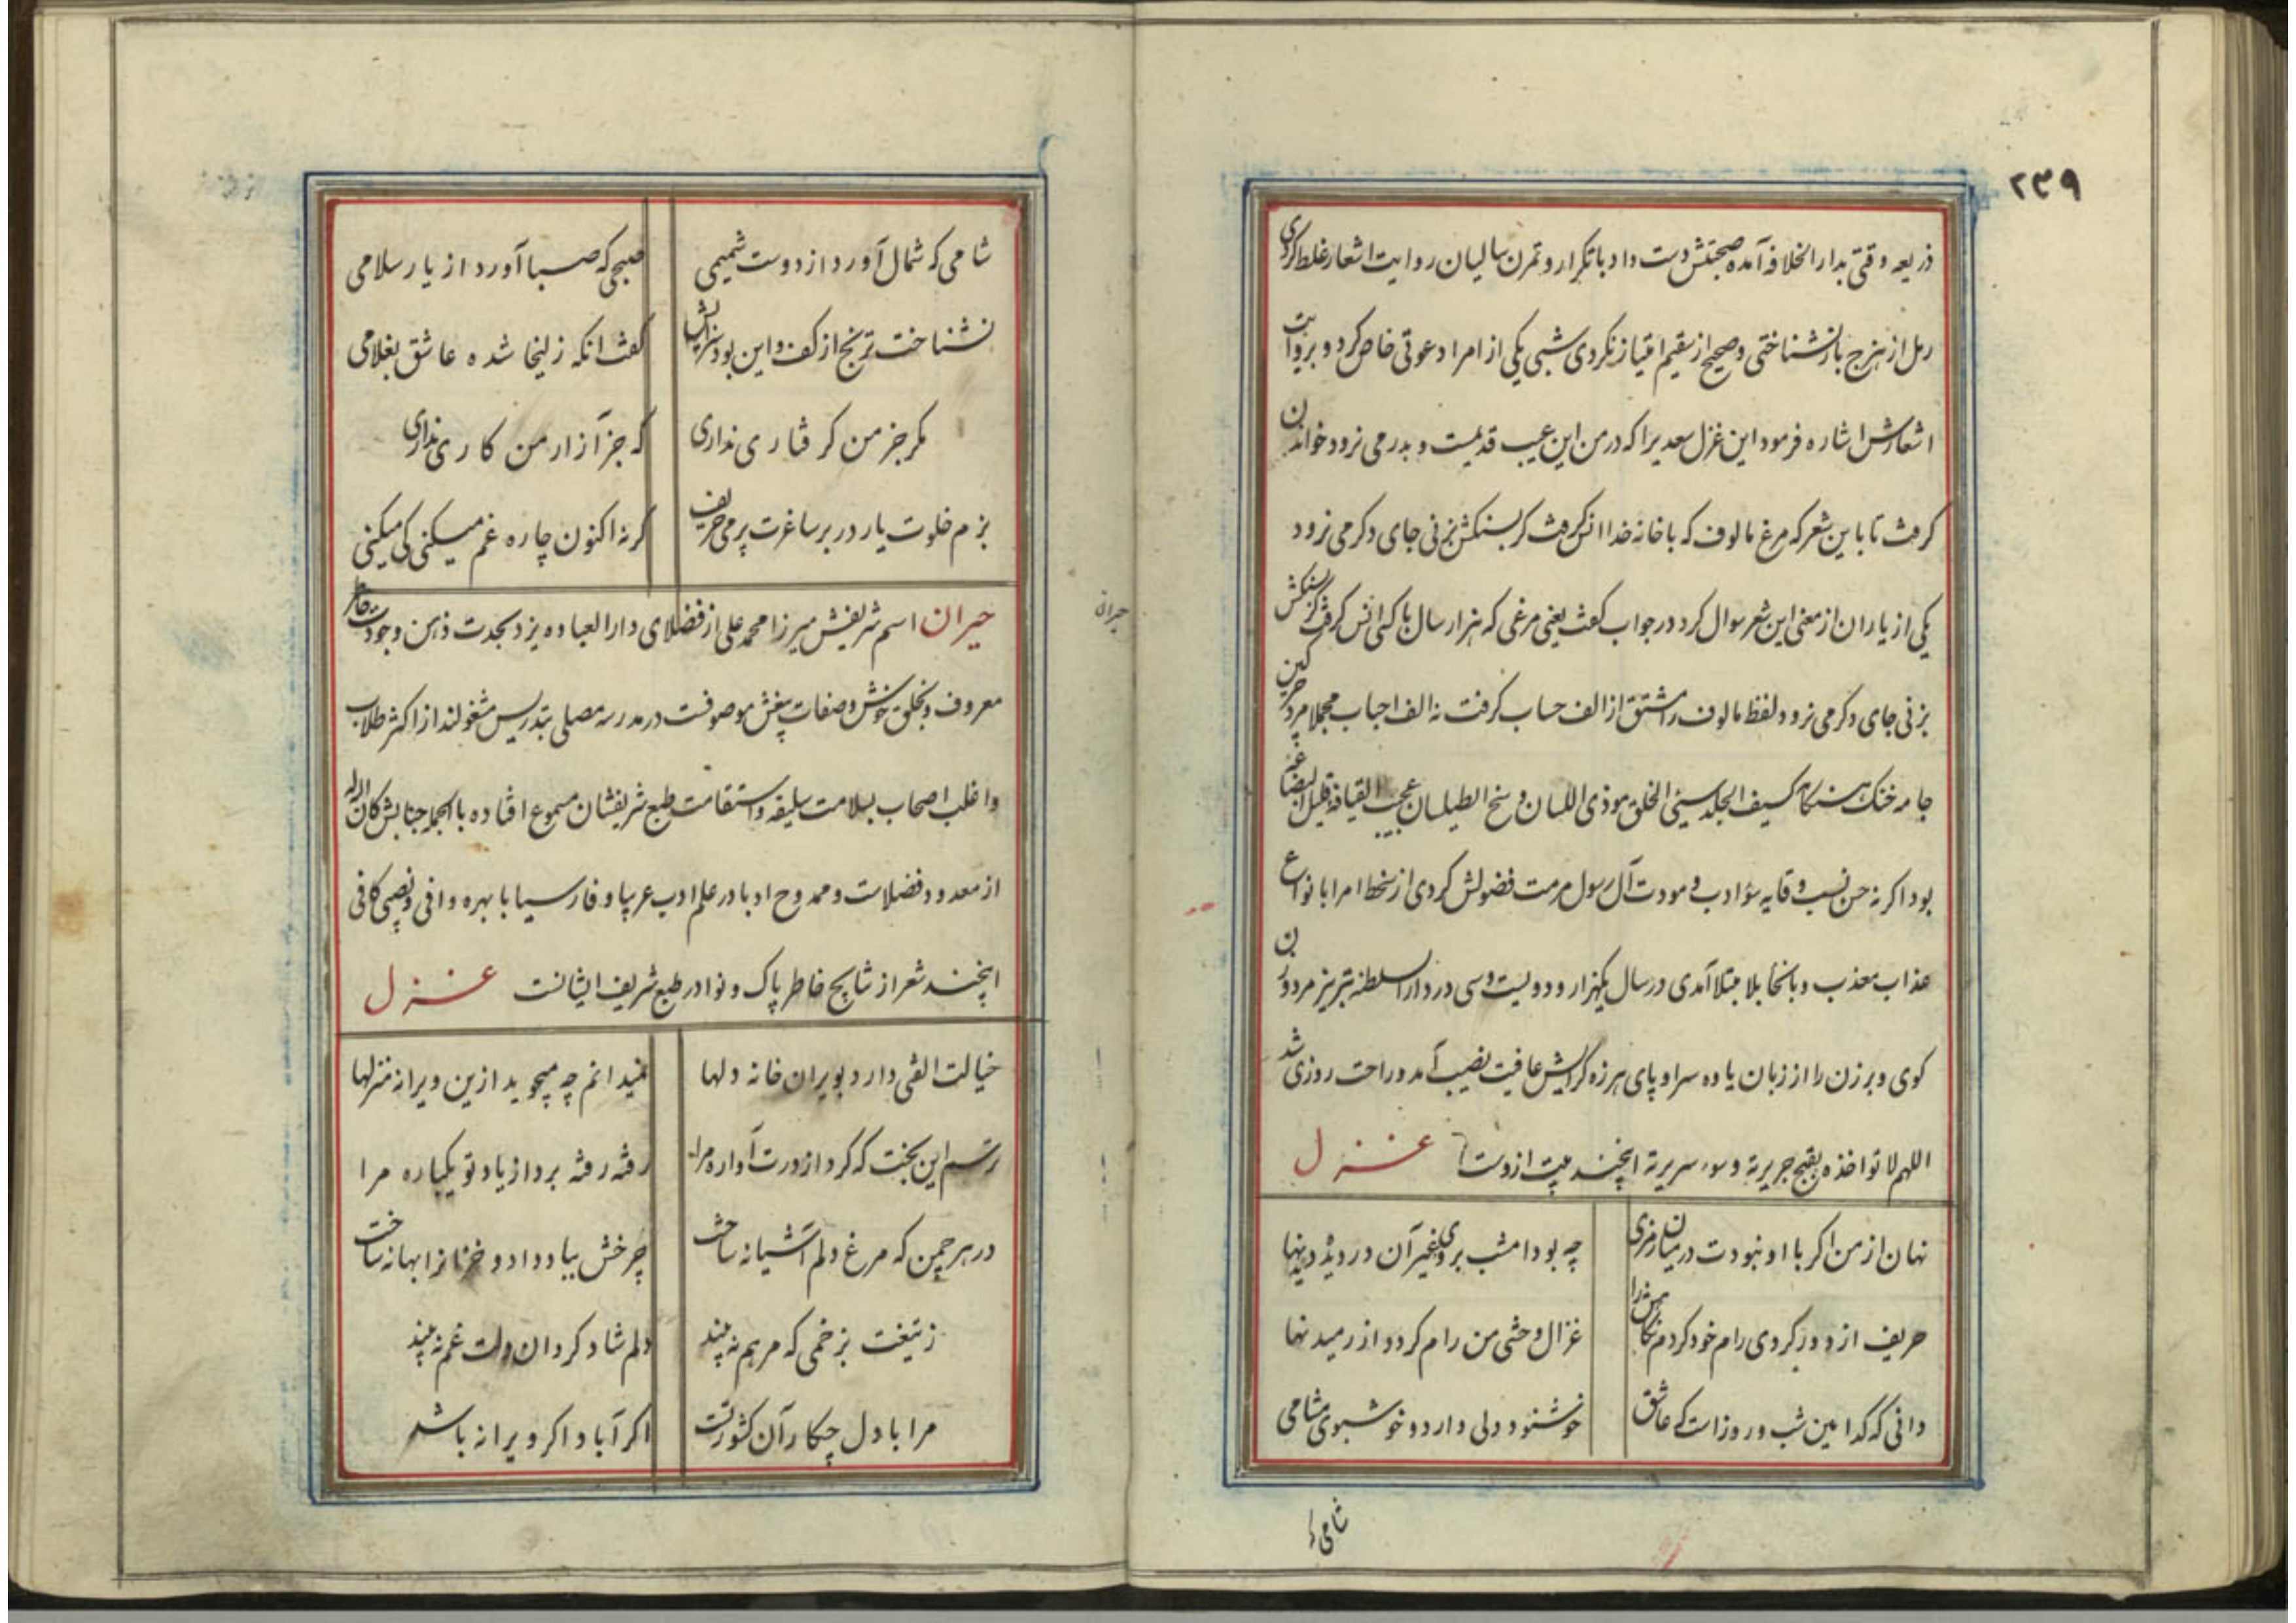 ۲۳۹
ذریعه وقتی بدار الخلافه آمده صحبتش دست داد با تکرار و تمرن سالیان روایت اشعار غلط کردی
رمل از هزج باز نشناختی و صحیح از سقیم امتیاز نکردی شبی یکی از امرا دعوتی خاص کرد و بروایت
اشعارش اشاره فرمود این غزل سعدیرا که در من این عیب قدیمست و بدر می نرود خواندن
کرفت تا باین شعر که مرغ مالوف که با خانه خدا انس کرفت کر بسنکش بزنی جای دکر می نرود
یکی از یاران از معنی این شعر سوال کرد در جواب کفت یعنی مرغی که هزار سال با کسی انس کرفت کر بسنکش
بزنی جای دکر می نرود و لفظ مالوف را مشتق از الف حساب کرفت نه الف احباب مجملا مرد چرکین
جامه خنک هنکامه کسیف الجلد سیئی الخلق موذی اللسان وسخ الطیلسان عجیب القیافه قلیل البضاعه
بود اکر نه حسن نسب وقایه سؤ ادب و مودت آل رسول مرمت فضولش کردی از سخط امرا بانواع
عذاب معذب و بانحا بلا مبتلا آمدی در سال یکهزار و دویست و سی در دار السلطنه تبریز مرد و زن
کوی و برزن را از زبان یاوه سرا و پای هرزه کرایش عافیت نصیب آمد و راحت روزی شد
اللهم لا تواخذه بقبح جریرته و سوء سریرته اینچند بیت ازوست غزل
نهان از من اکر با او نبودت در میان رمزی چه بود امشب بروی غیر آن دزدیده دیدنها
حریف از دور کردی رام خود کردم نکاهش را غزال وحشی من رام کرد و از رمیدنها
دانی که کدامین شب و روز است که عاشق خوشنود دلی دارد و خوشبوی مشامی
شامی که
شامی که شمال آورد از دوست شمیمی صبحی که صبا آورد از یار سلامی
نشناخت ترنج از کف و این بود سزایش کفت آنکه زلیخا شده عاشق بغلامی
مکر جز من کرفتاری نداری که جز آزار من کاری نداری
بزم خلوت یار در بر ساغرت پر می حریف کرنه اکنون چاره غم میکنی کی میکنی
حیران
حیران اسم شریفش میرزا محمد علی از فضلای دار العباده یزد بحدت ذهن و جودت خاطر
معروف و بخلق خوش و صفات بیغش موصوفست در مدرسه مصلی بتدریس مشغولند از اکثر طلاب
و اغلب اصحاب بسلامت سلیقه و استقامت طبع شریفشان مسموع افتاده بالجمله جنابش کان الله له
از معدود فضلاست و ممدوح ادبا در علم ادب عربیا و فارسیا با بهره وافی و نصیبی کافی
اینچند شعر از نتایج خاطر پاک و نوادر طبع شریف ایشانست غزل
خیالت الفتی دارد بویران خانه دلها نمیدانم چه میجوید ازین ویرانه منزلها
رسم این بخت که کرد از درت آواره مرا رفته رفته برد از یاد تو یکباره مرا
در هر چمن که مرغ دلم آشیانه ساخت چرخش بباد داد و خزانرا بهانه ساخت
ز تیغت بزخمی که مرهم نه بیند دلم شاد کردان دلت غم نه بیند
مرا با دل چکار آن کشور تست اکر آباد اکر ویرانه باشد